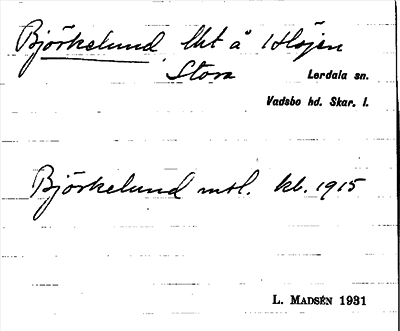 Björkelund, lht å Höjen
Stora Lerdala sn.
Vadsbo hd. Skar. l.
Björkelund mtl. kb. 1915
L. MADSÉN 1931